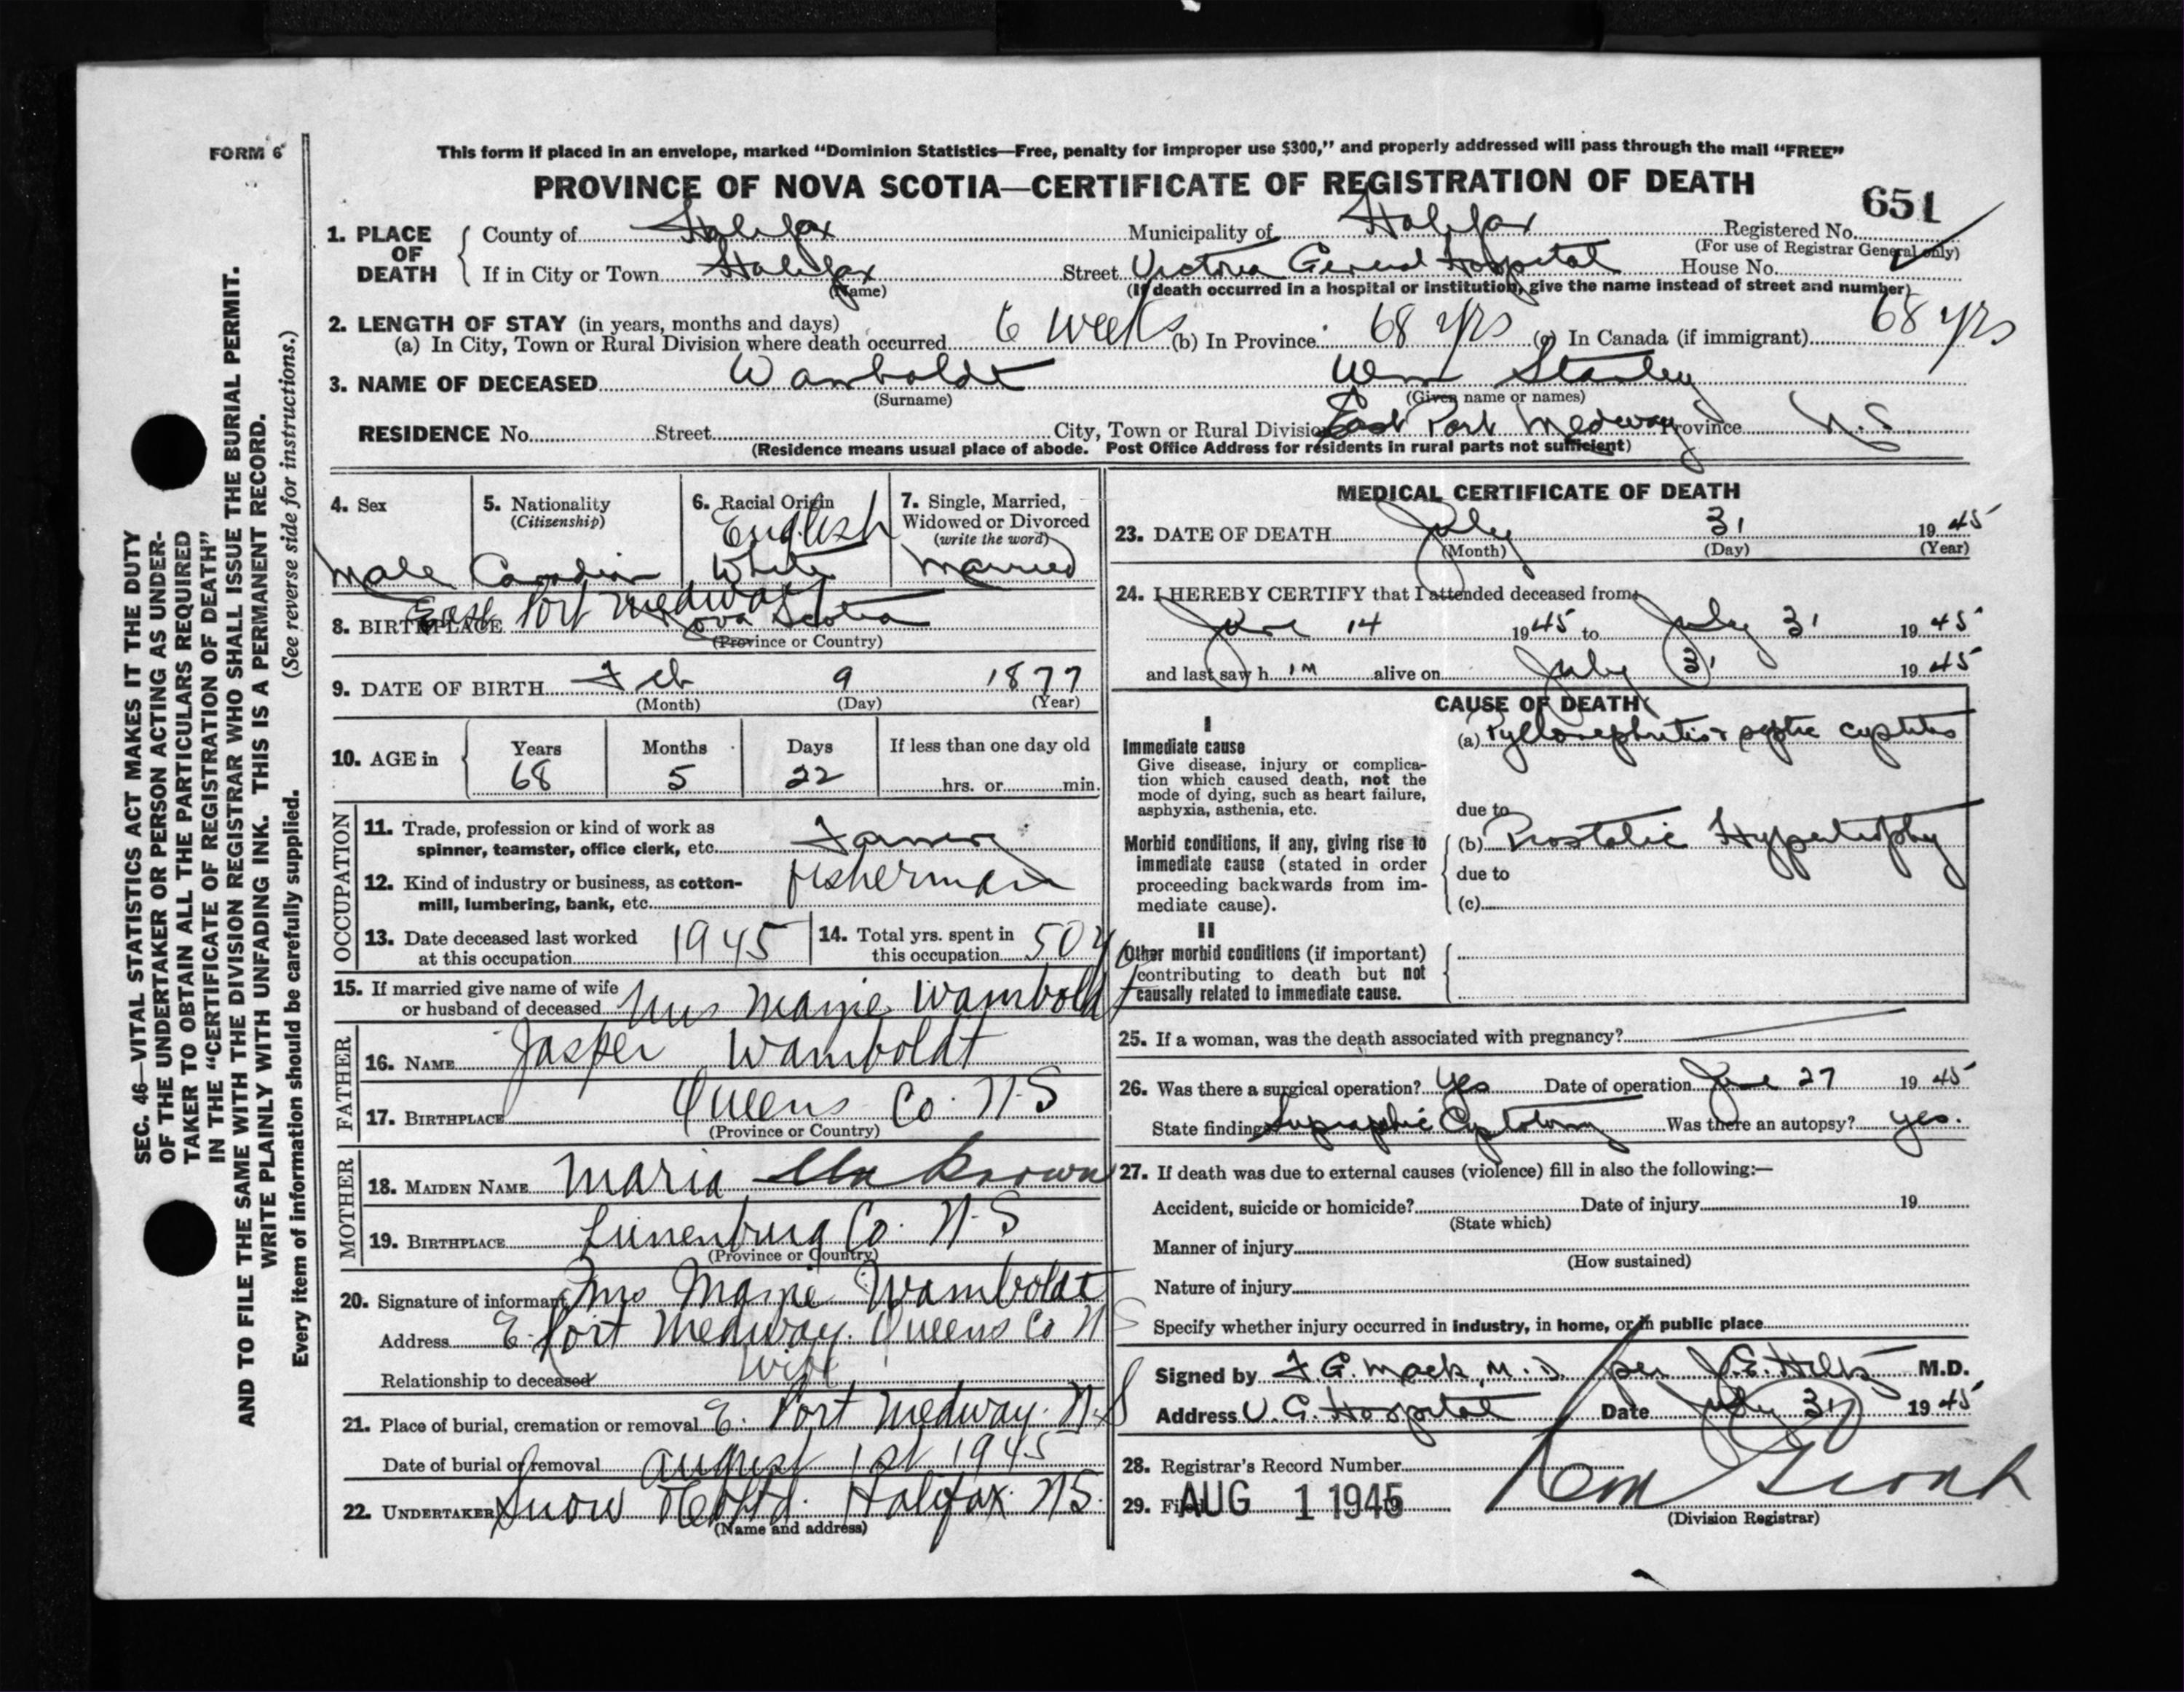 FORM 6
This form if placed in an envelope, marked “Dominion Statistics—Free, penalty for improper use $300,” and properly addressed will pass through the mail “FREE”
PROVINCE OF NOVA SCOTIA—CERTIFICATE OF REGISTRATION OF DEATH
651
1. PLACE OF DEATH
County of Halifax Municipality of Halifax Registered No.
(For use of Registrar General only)
If in City or Town Halifax Street Victoria General Hospital House No.
(Name) (If death occurred in a hospital or institution, give the name instead of street and number)
2. LENGTH OF STAY (in years, months and days)
(a) In City, Town or Rural Division where death occurred 6 weeks (b) In Province 68 yrs (c) In Canada (if immigrant) 68 yrs
3. NAME OF DECEASED Wamboldt Wm Stanley
(Surname) (Given name or names)
RESIDENCE No. Street City, Town or Rural Division East Port Medway Province N.S
(Residence means usual place of abode. Post Office Address for residents in rural parts not sufficient)
4. Sex Male
5. Nationality (Citizenship) Canadian
6. Racial Origin English White
7. Single, Married, Widowed or Divorced (write the word) Married
8. BIRTHPLACE East Port Medway Nova Scotia
(Province or Country)
9. DATE OF BIRTH Feb 9 1877
(Month) (Day) (Year)
10. AGE in Years 68 Months 5 Days 22 If less than one day old
hrs. or min.
OCCUPATION
11. Trade, profession or kind of work as
spinner, teamster, office clerk, etc. Farmer
12. Kind of industry or business, as cotton-
mill, lumbering, bank, etc. fisherman
13. Date deceased last worked
at this occupation 1945
14. Total yrs. spent in
this occupation 50 y
15. If married give name of wife
or husband of deceased Mrs Mamie Wamboldt
FATHER
16. NAME Jasper Wamboldt
17. BIRTHPLACE Queens Co. N-S
(Province or Country)
MOTHER
18. MAIDEN NAME Maria Unknown
19. BIRTHPLACE Lunenburg Co. N-S
(Province or Country)
20. Signature of informant Mrs Mamie Wamboldt
Address E. Port Medway. Queens Co NS
Relationship to deceased wife
21. Place of burial, cremation or removal E. Port Medway. N.S
Date of burial or removal August 1st 1945
22. UNDERTAKER Snow & Co Ltd. Halifax. NS.
(Name and address)
MEDICAL CERTIFICATE OF DEATH
23. DATE OF DEATH July 31 1945
(Month) (Day) (Year)
24. I HEREBY CERTIFY that I attended deceased from
June 14 1945 to July 31 1945
and last saw h im alive on July 31 1945
CAUSE OF DEATH
I
Immediate cause
Give disease, injury or complica-
tion which caused death, not the
mode of dying, such as heart failure,
asphyxia, asthenia, etc.
(a) Pyelonephritis & septic cystitis
due to
Morbid conditions, if any, giving rise to
immediate cause (stated in order
proceeding backwards from im-
mediate cause).
(b) Prostatic Hypertrophy
due to
(c)
II
Other morbid conditions (if important)
contributing to death but not
causally related to immediate cause.
25. If a woman, was the death associated with pregnancy?
26. Was there a surgical operation? Yes Date of operation June 27 1945
State findings Suprapubic Cystotomy Was there an autopsy? yes.
27. If death was due to external causes (violence) fill in also the following:—
Accident, suicide or homicide? Date of injury 19
(State which)
Manner of injury
(How sustained)
Nature of injury
Specify whether injury occurred in industry, in home, or in public place
Signed by F. G. Mack, M.D. per J.E. Hiltz M.D.
Address V. G. Hospital Date July 31 1945
28. Registrar's Record Number
29. Filed AUG 1 1945
(Division Registrar)
SEC. 46—VITAL STATISTICS ACT MAKES IT THE DUTY
OF THE UNDERTAKER OR PERSON ACTING AS UNDER-
TAKER TO OBTAIN ALL THE PARTICULARS REQUIRED
IN THE “CERTIFICATE OF REGISTRATION OF DEATH”
AND TO FILE THE SAME WITH THE DIVISION REGISTRAR WHO SHALL ISSUE THE BURIAL PERMIT.
WRITE PLAINLY WITH UNFADING INK. THIS IS A PERMANENT RECORD.
Every item of information should be carefully supplied. (See reverse side for instructions.)